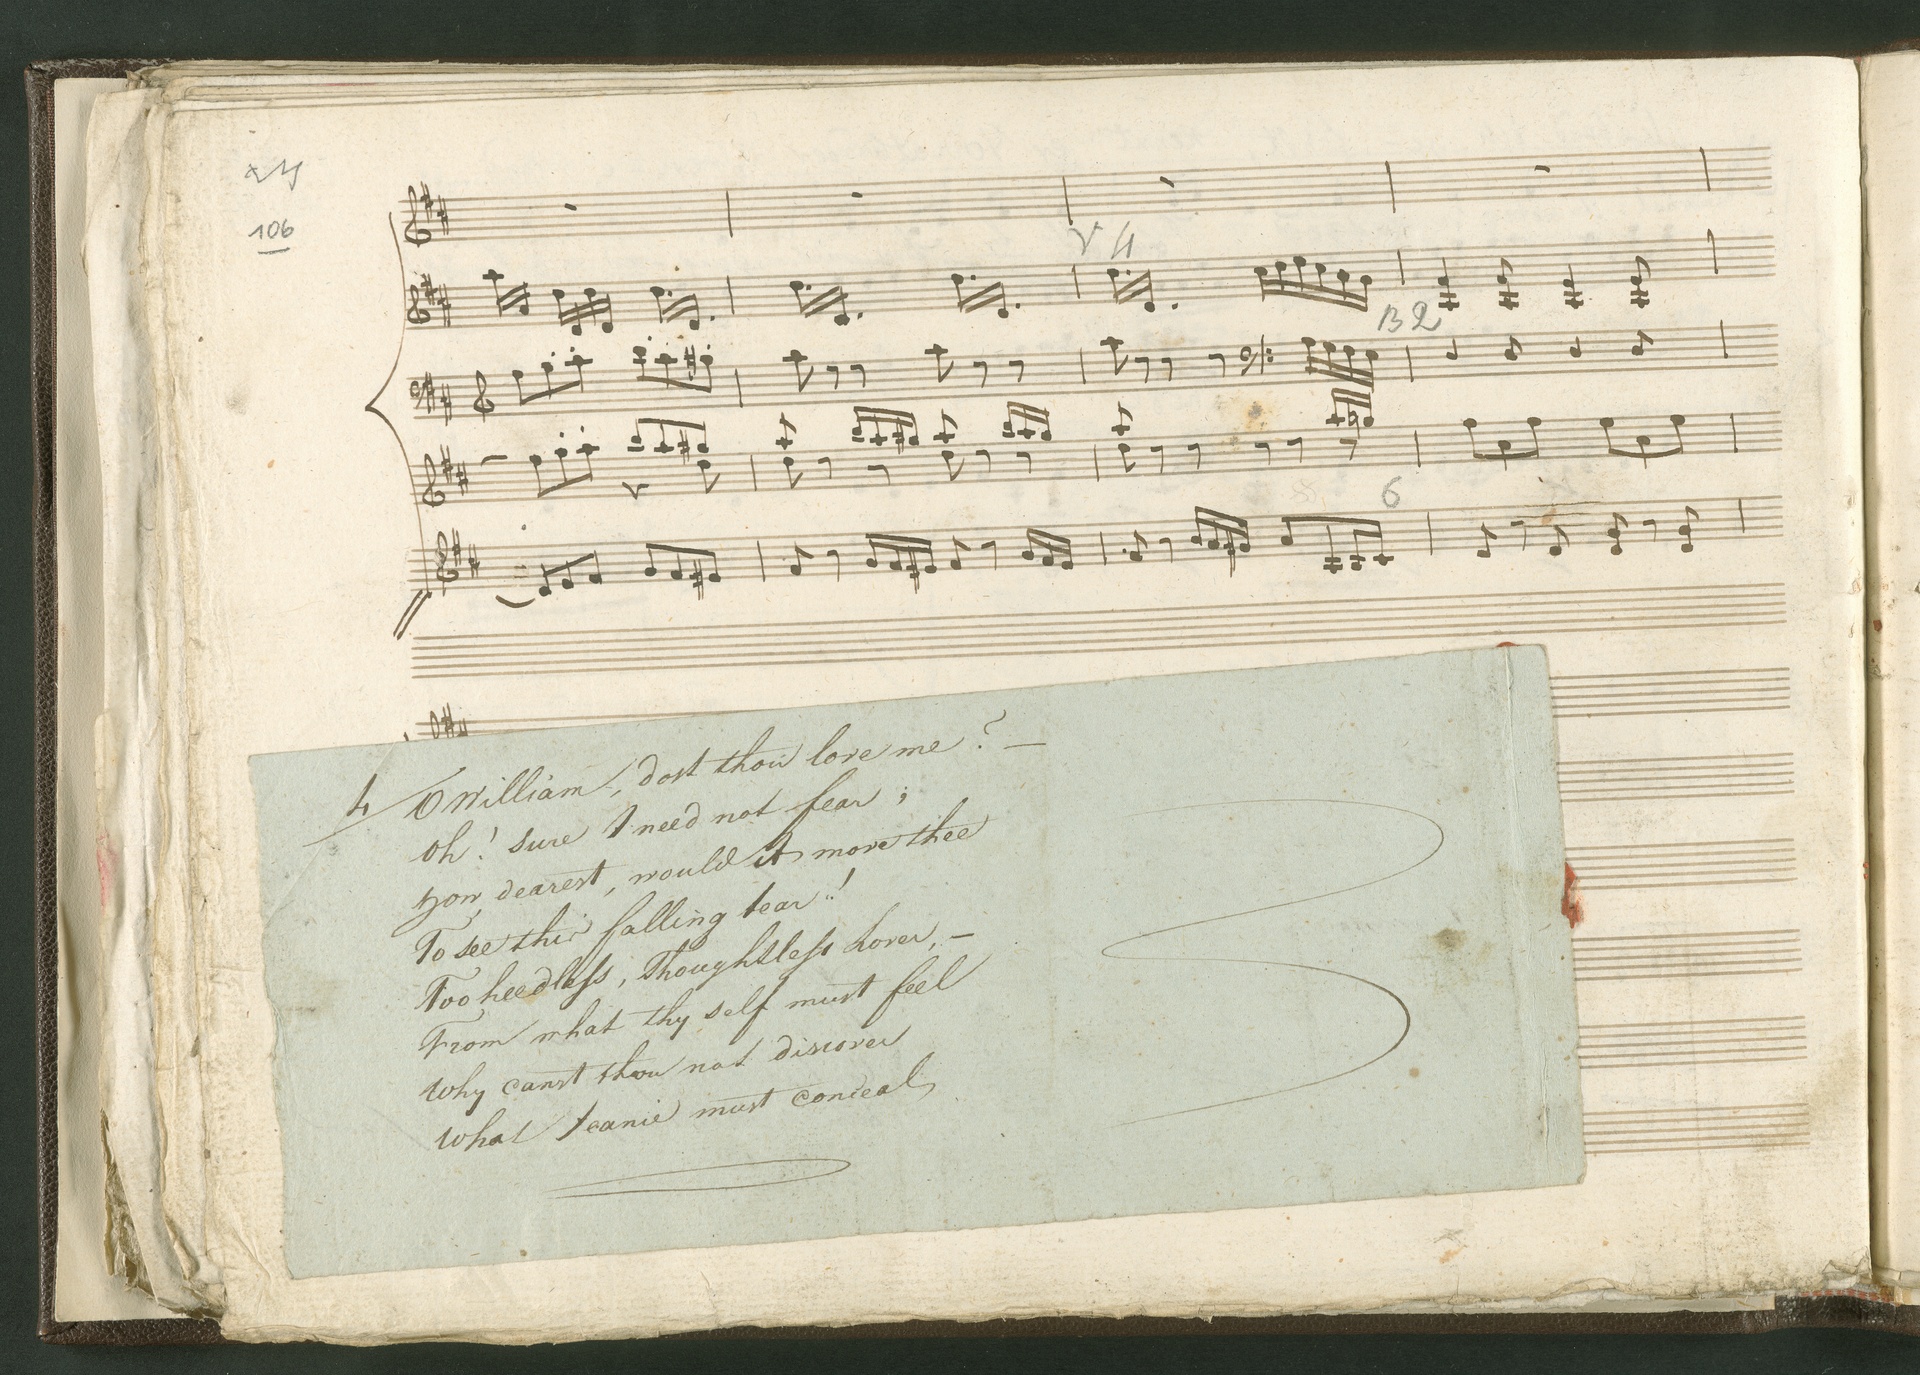 106
V 4
B 2
6
4 O William, dost thou love me? —
Oh! sure I need not fear;
How, dearest, would it move thee
To see this falling tear!
Too heedless, thoughtless Lover, —
From what thy self must feel
Why canst thou not discover
What Jeanie must conceal,